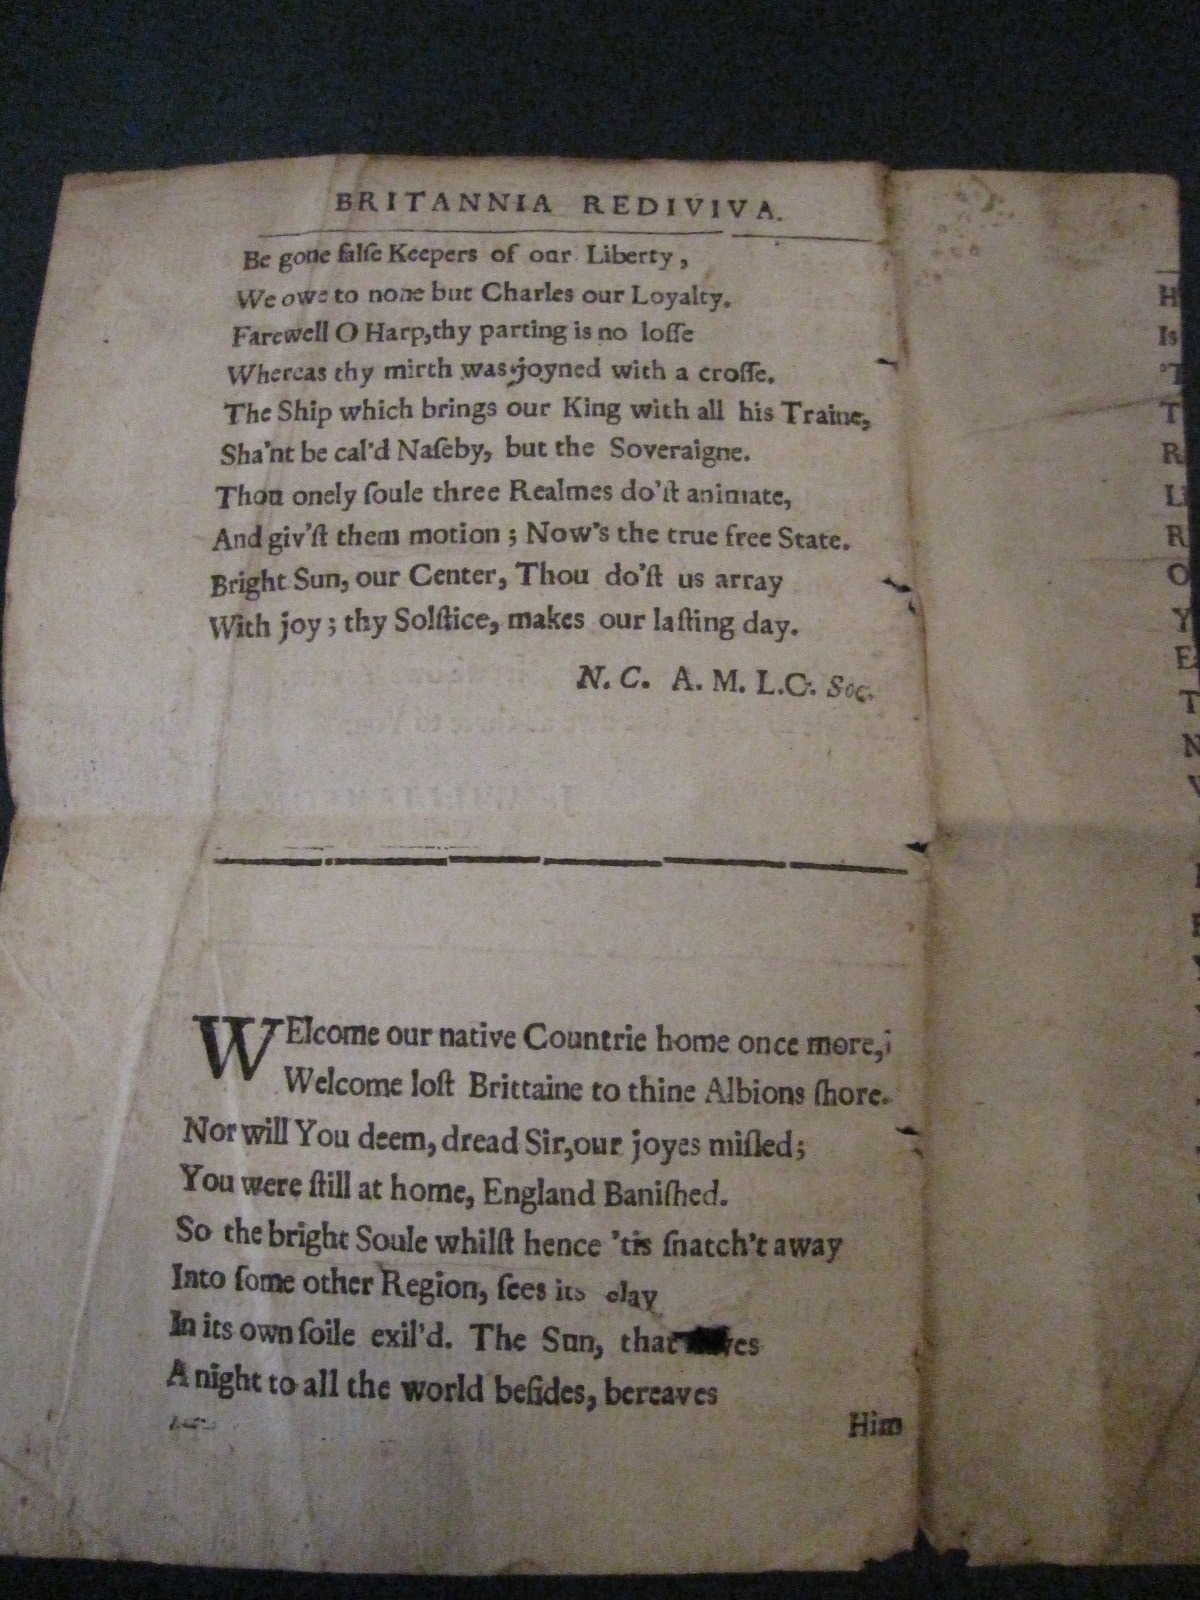 BRITANNIA REDIVIVA.
Be gone falſe Keepers of our Liberty,
We owe to none but Charles our Loyalty.
Farewell O Harp,thy parting is no loſſe
Whereas thy mirth was joyned with a croſſe.
The Ship which brings our King with all his Traine,
Sha'nt be cal'd Naſeby, but the Soveraigne.
Thou onely ſoule three Realmes do'ſt animate,
And giv'ſt them motion ; Now's the true free State.
Bright Sun, our Center, Thou do'ſt us array
With joy ; thy Solſtice, makes our laſting day.
N. C. A. M. L.C. Soc.
WElcome our native Countrie home once more,
Welcome loſt Brittaine to thine Albions ſhore.
Nor will You deem, dread Sir,our joyes miſled;
You were ſtill at home, England Baniſhed.
So the bright Soule whilſt hence 'tis ſnatch't away
Into ſome other Region, ſees its clay
In its own ſoile exil'd. The Sun, that
A night to all the world beſides, bereaves
Him
H
Is
'T
T
R
LI
R
O
Y
E
T
N
V